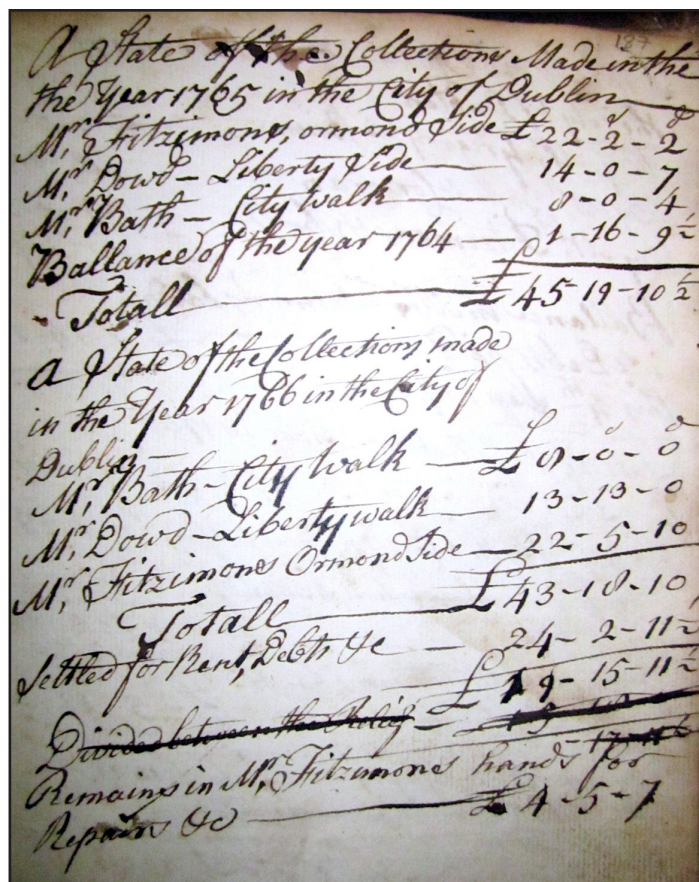 187
A State of the Collections Made in the
the Year 1765 in the City of Dublin
Mr. Fitzimons, ormond Side £ 22-2-2
Mr. Dowd - Liberty Side 14-0-7
Mr. Bath - City walk 8-0-4
Ballance of the year 1764 1-16-9½
Totall £ 45-19-10½
a State of the Collections made
in the Year 1766 in the City of
Dublin
Mr. Bath - City walk £ 8-0-0
Mr. Dowd - Liberty walk 13-13-0
Mr. Fitzimones Ormond Side 22-5-10
Totall £ 43-18-10
Settled for Rent, Debts &c 24-2-11½
£ 19-15-11½
Divided between the
Remains in Mr. Fitzimones hands for
Repairs &c £ 4-5-7